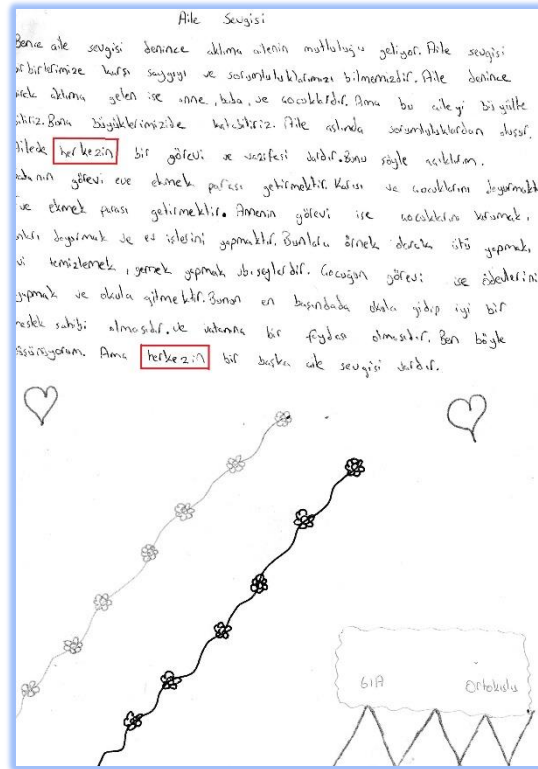 Aile Sevgisi
Bence aile sevgisi denince aklıma ailenin mutluluğu geliyor. Aile sevgisi
birbirlerimize karşı saygıyı ve sorumluluklarımızı bilmemizdir. Aile denince
aklıma gelen ise anne, baba, ve çocuklardır. Ama bu aileyi
Buna büyüklerimizide katabiliriz. Aile aslında sorumluluklardan oluşur.
Ailede herkezin bir görevi ve vazifesi vardır. Bunu şöyle açıklarım.
babanın görevi eve ekmek parası getirmektir. Karısı ve çocuklarını doyurmak
ve ekmek parası getirmektir. Annenin görevi ise çocuklarını korumak,
onları doyurmak ve ev işlerini yapmaktır. Bunlara örnek olarak ütü yapmak,
evi temizlemek, yemek yapmak vb. şeylerdir. Çocuğun görevi ise ödevlerini
yapmak ve okula gitmektir. Bunun en başındada okula gidip iyi bir
meslek sahibi olmasıdır. ve vatanına bir faydası olmasıdır. Ben böyle
düşünüyorum. Ama herkezin bir başka aile sevgisi vardır.
6/A Ortakuluş